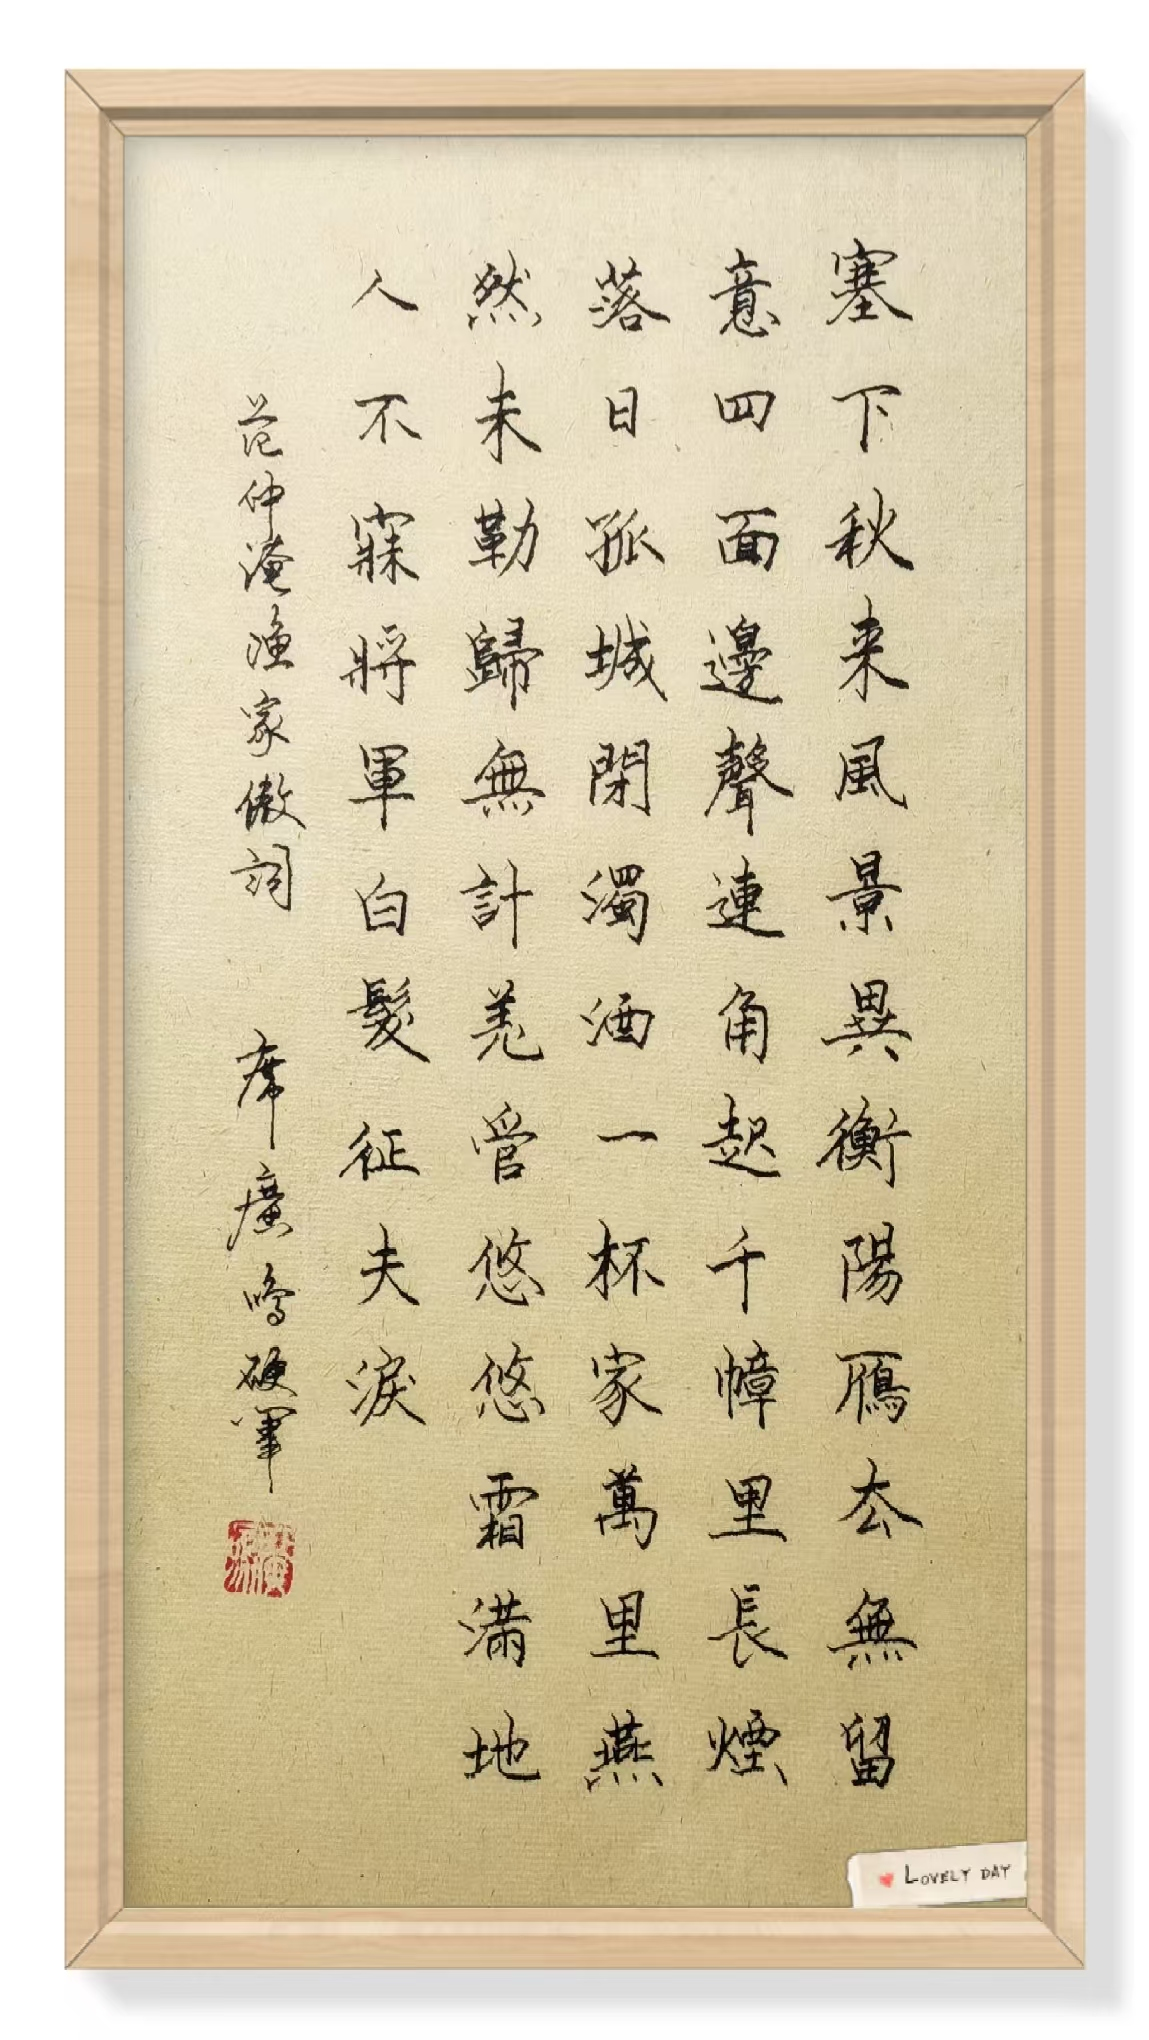 塞下秋来風景異衡陽鴈去無留
意四面邊聲連角起千幛里長煙
落日孤城閉濁酒一杯家萬里燕
然未勒歸無計羌管悠悠霜滿地
人不寐將軍白髮征夫淚
范仲淹漁家傲詞 席廣鳴硬筆
LOVELY DAY